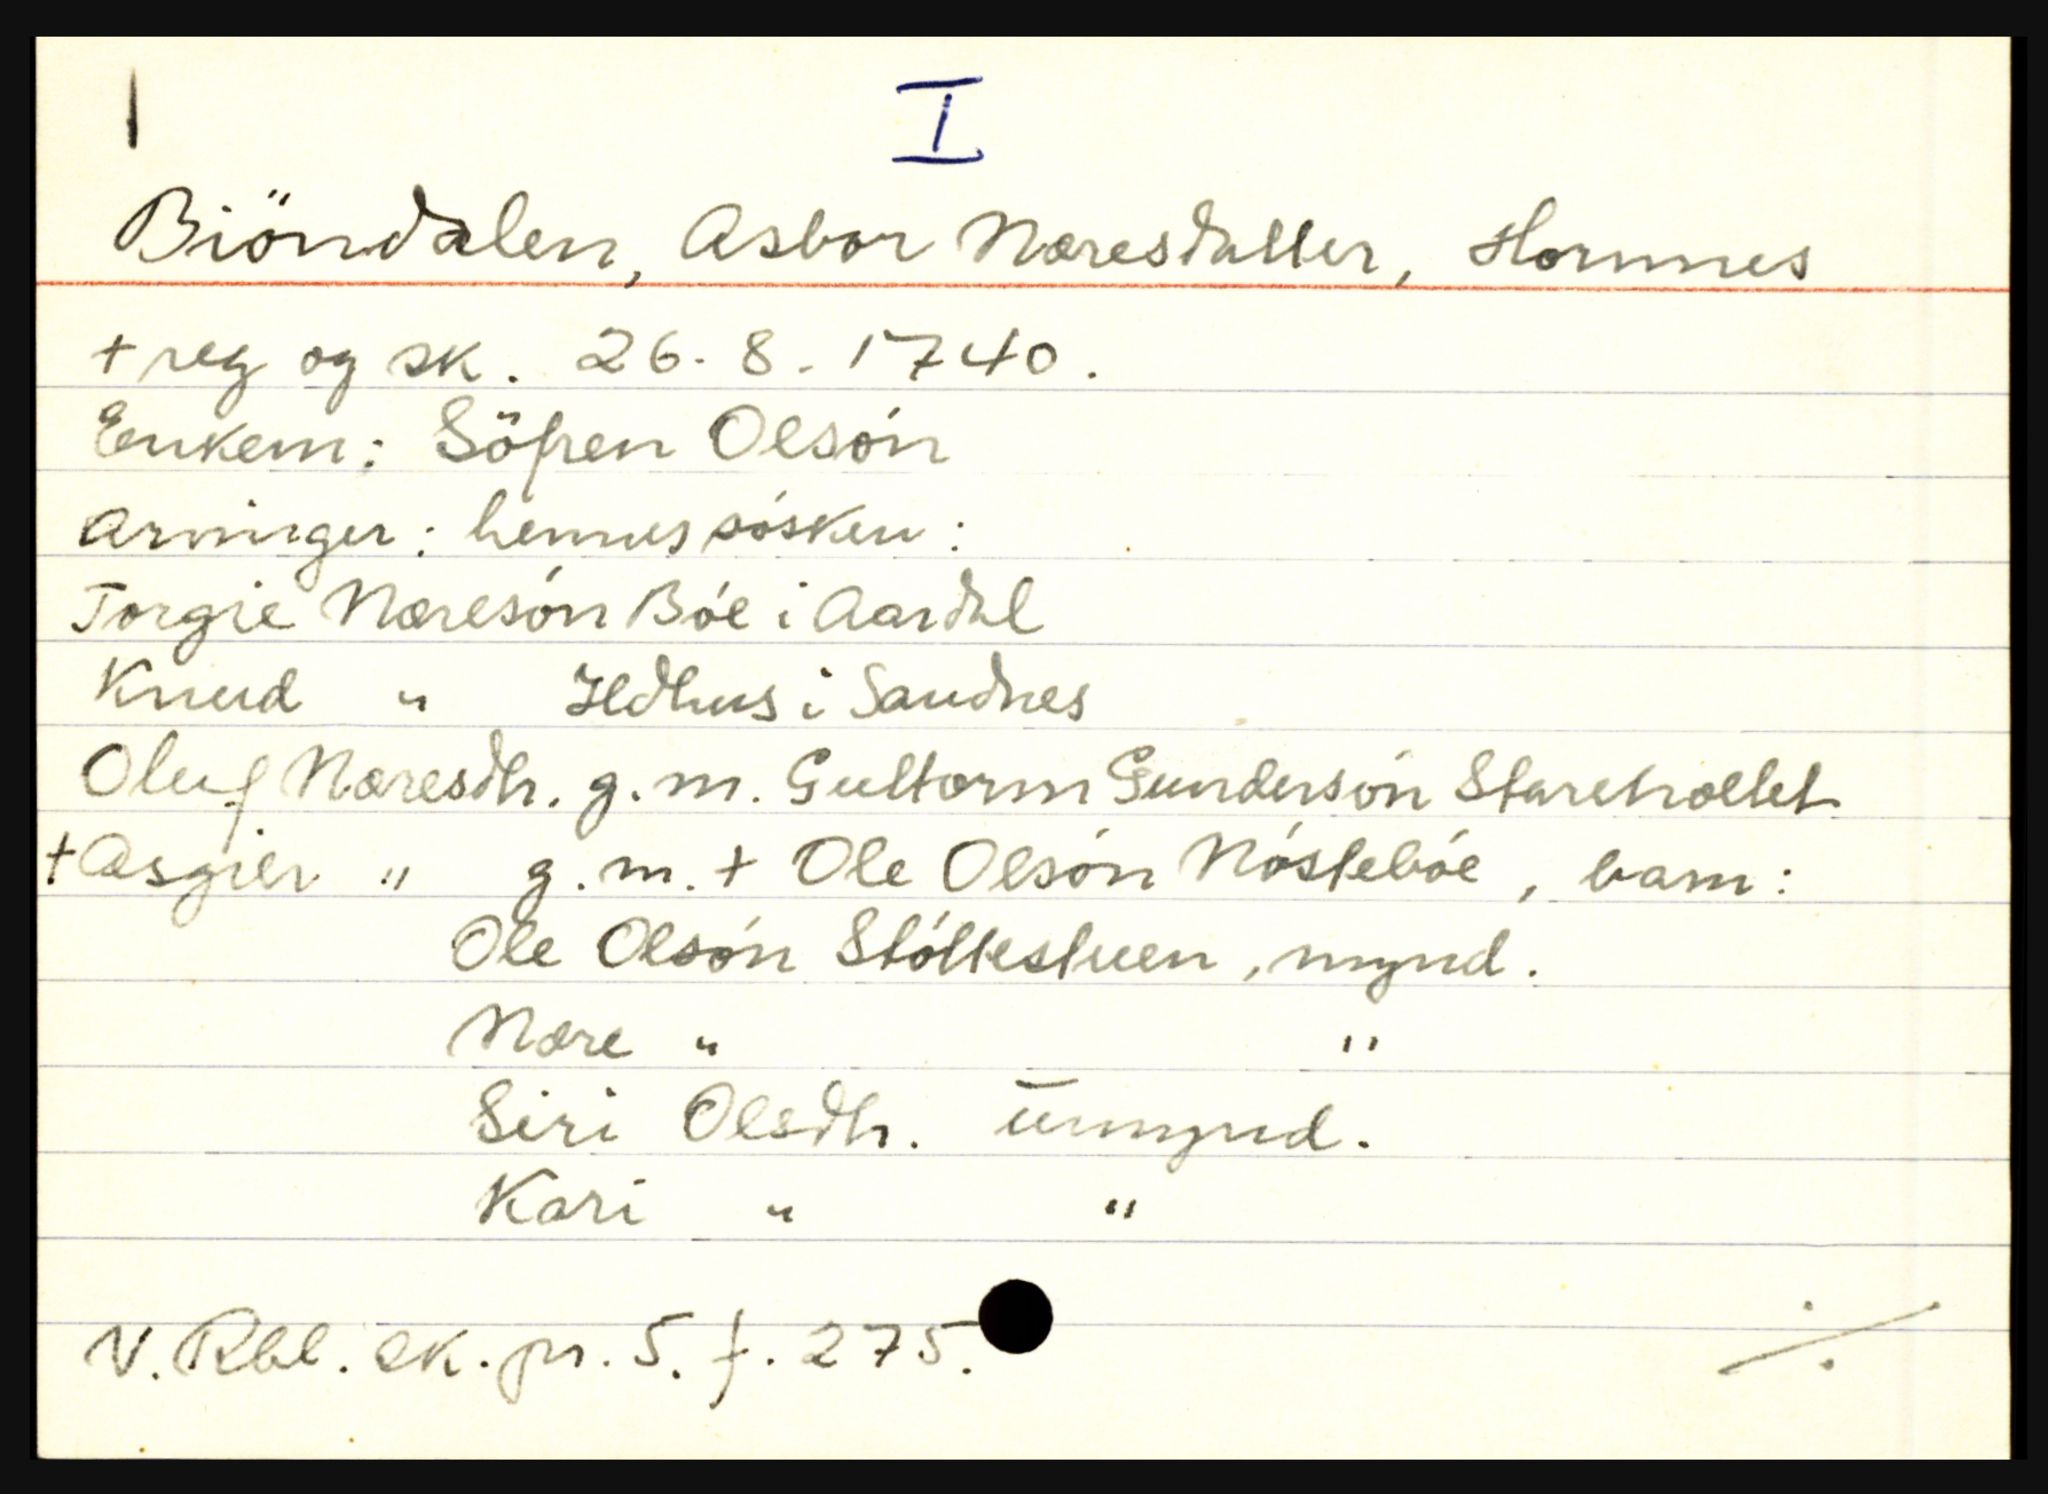 1
I
Biöndalen, Asbor Næresdatter, Hornnes
+ reg og sk. 26. 8. 1740.
Enkem: Söfren Olsón
Arvinger: hennes sósken:
Torgie Næresón Bóe i Aardal
Knud " Ildhus i Sandnes
Oluf Næresdtr. g.m. Guttorm Gundersón
+ Asgier " g.m. + Ole Olsón Nóstebóe, barn:
Ole Olsón Stóltestuen, mynd.
Nære " "
Siri Olsdtr. umynd.
Kari " "
V. Rbl. sk. pr. 5. f. 275.
./.